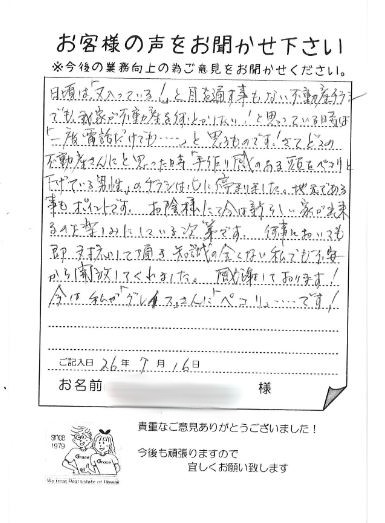 お客様の声をお聞かせ下さい
※今後の業務向上の為ご意見をお聞かせください。
日頃は「又入っている!」と目を通す事もない不動産チラシ
でも我家が不動産を何とかしたい!と思っている時は
「一度電話だけでも……」と思うものです!さてどこの
不動産さんにと思った時「手作り感のある頭をペコリと
下げている男性」のチラシは心に停まりました。地元である
事もポイントです。お陰様にて今は新らしい家が出来
るのを楽しみにしている次第です。何事においても
即対応して頂き知識の全くない私でも不安
から開放してくれました。感謝しております!
今は私が「グレイスさんに「ペコリ」……です!
ご記入日 26年 7月 16日
お名前 様
貴重なご意見ありがとうございました!
今後も頑張りますので
宜しくお願い致します
since
1979
Grace
Grace